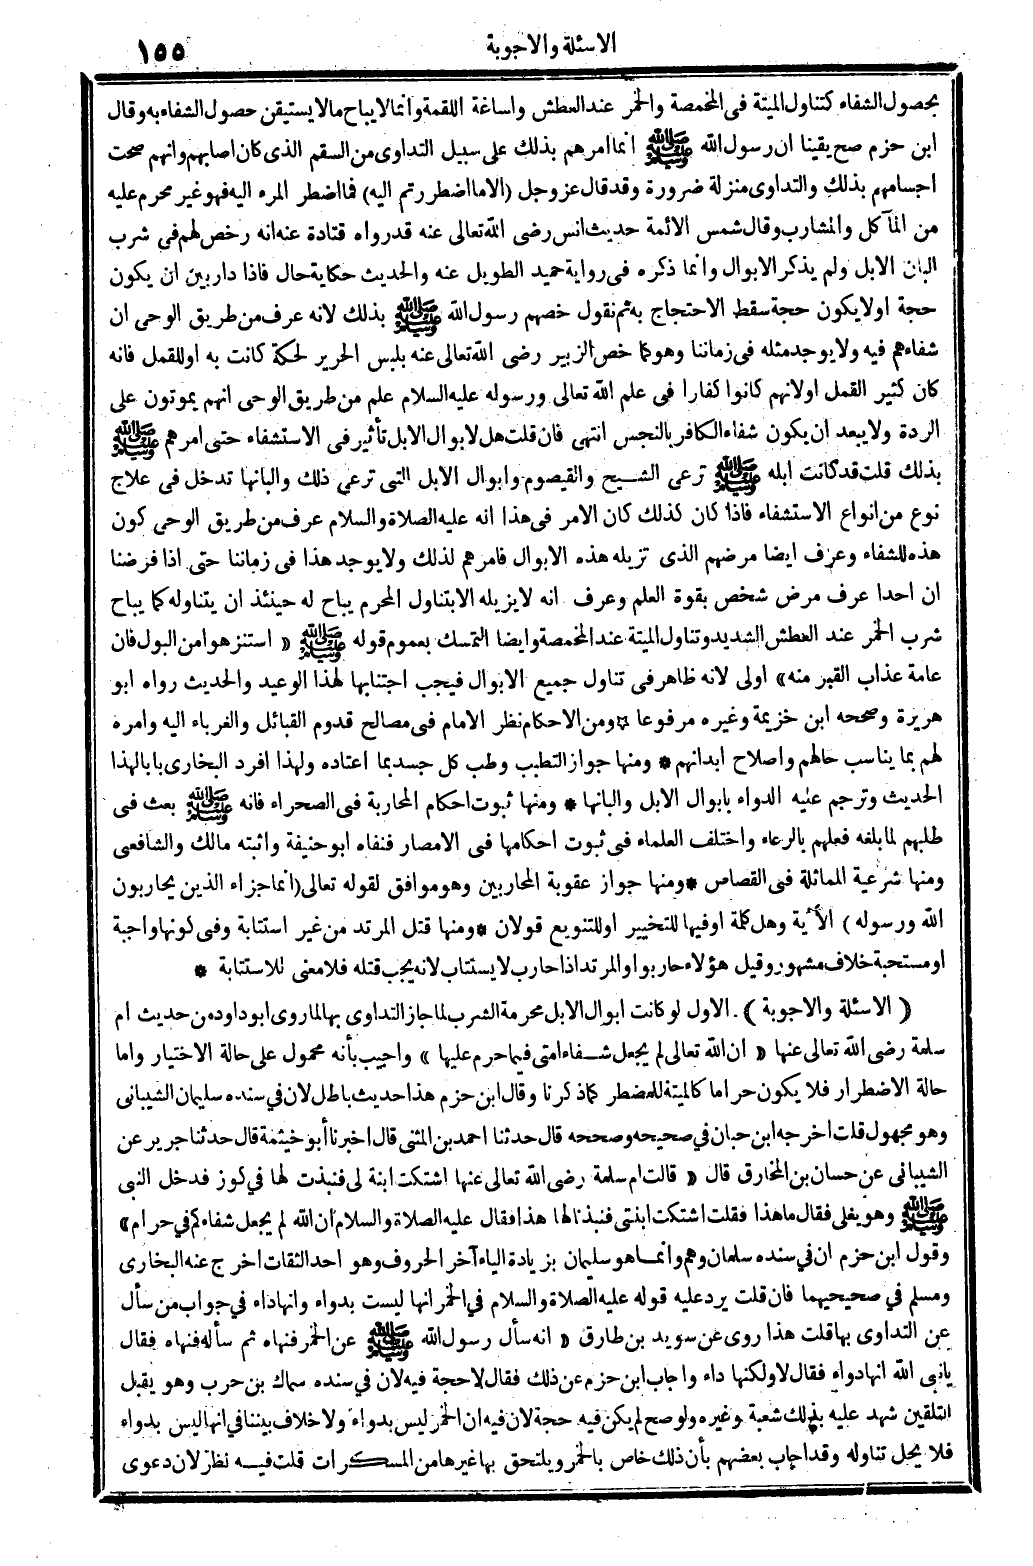 الاسئلة والاجوبة ١٥٥
بحصول الشفاء كتناول الميتة فى المخمصة والخمر عند العطش واساغة اللقمة وانما لايباح مالايستيقن حصول الشفاء به وقال
ابن حزم صح يقينا ان رسول الله ﷺ انما امرهم بذلك على سبيل التداوى من السقم الذى كان اصابهم وانهم صحت
اجسامهم بذلك والتداوى منزلة ضرورة وقد قال عز وجل (الا ما اضطررتم اليه) فما اضطر المرء اليه فهو غير محرم عليه
من المآكل والمشارب وقال شمس الائمة حديث انس رضى الله تعالى عنه قد رواه قتادة عنه انه رخص لهم فى شرب
البان الابل ولم يذكر الابوال وانما ذكره فى رواية حميد الطويل عنه والحديث حكاية حال فاذا دار بين ان يكون
حجة اولا يكون حجة سقط الاحتجاج به ثم نقول خصهم رسول الله ﷺ بذلك لانه عرف من طريق الوحى ان
شفاءهم فيه ولا يوجد مثله فى زماننا وهو كما خص الزبير رضى الله تعالى عنه بلبس الحرير لحكة كانت به او للقمل فانه
كان كثير القمل اولانهم كانوا كفارا فى علم الله تعالى ورسوله عليه السلام علم من طريق الوحى انهم يموتون على
الردة ولا يبعد ان يكون شفاء الكافر بالنجس انتهى فان قلت هل لابوال الابل تأثير فى الاستشفاء حتى امرهم ﷺ
بذلك قلت قد كانت ابله ﷺ ترعى الشيح والقيصوم وابوال الابل التى ترعى ذلك والبانها تدخل فى علاج
نوع من انواع الاستشفاء فاذا كان كذلك كان الامر فى هذا انه عليه الصلاة والسلام عرف من طريق الوحى كون
هذه للشفاء وعرف ايضا مرضهم الذى تزيله هذه الابوال فامرهم لذلك ولا يوجد هذا فى زماننا حتى اذا فرضنا
ان احدا عرف مرض شخص بقوة العلم وعرف انه لا يزيله الا بتناول المحرم يباح له حينئذ ان يتناوله كما يباح
شرب الخمر عند العطش الشديد وتناول الميتة عند المخمصة وايضا التمسك بعموم قوله ﷺ « استنزهوا من البول فان
عامة عذاب القبر منه» اولى لانه ظاهر فى تناول جميع الابوال فيجب اجتنابها لهذا الوعيد والحديث رواه ابو
هريرة وصححه ابن خزيمة وغيره مرفوعا * ومن الاحكام نظر الامام فى مصالح قدوم القبائل والغرباء اليه وامره
لهم بما يناسب حالهم واصلاح ابدانهم * ومنها جواز التطبب وطب كل جسد بما اعتاده ولهذا افرد البخارى بابا لهذا
الحديث وترجم عليه الدواء بابوال الابل والبانها * ومنها ثبوت احكام المحاربة فى الصحراء فانه ﷺ بعث فى
طلبهم لما بلغه فعلهم بالرعاء واختلف العلماء فى ثبوت احكامها فى الامصار فنفاه ابو حنيفة واثبته مالك والشافعى
ومنها شرعية المماثلة فى القصاص * ومنها جواز عقوبة المحاربين وهو موافق لقوله تعالى (انما جزاء الذين يحاربون
الله ورسوله) الآية وهل كلمة او فيها للتخيير او للتنويع قولان * ومنها قتل المرتد من غير استتابة وفى كونها واجبة
او مستحبة خلاف مشهور وقيل هؤلاء حاربوا والمرتد اذا حارب لا يستتاب لانه يجب قتله فلا معنى للاستتابة *
(الاسئلة والاجوبة). الاول لو كانت ابوال الابل محرمة الشرب لما جاز التداوى بها لما روى ابو داود من حديث ام
سلمة رضى الله تعالى عنها « ان الله تعالى لم يجعل شفاء امتى فيما حرم عليها » واجيب بأنه محمول على حالة الاختيار واما
حالة الاضطرار فلا يكون حراما كالميتة للمضطر كما ذكرنا وقال ابن حزم هذا حديث باطل لان في سنده سليمان الشيبانى
وهو مجهول قلت اخرجه ابن حبان في صحيحه وصححه قال حدثنا احمد بن المثنى قال اخبرنا أبو خيثمة قال حدثنا جرير عن
الشيبانى عن حسان بن المخارق قال « قالت ام سلمة رضى الله تعالى عنها اشتكت ابنة لى فنبذت لها في كوز فدخل النبى
ﷺ وهو يغلى فقال ما هذا فقلت اشتكت ابنتى فنبذنا لها هذا فقال عليه الصلاة والسلام ان الله لم يجعل شفاءكم في حرام»
وقول ابن حزم ان في سنده سلمان وهم وانما هو سليمان بزيادة الياء آخر الحروف وهو احد الثقات اخرج عنه البخارى
ومسلم في صحيحيهما فان قلت يرد عليه قوله عليه الصلاة والسلام في الخمر انها ليست بدواء وانها داء في جواب من سأل
عن التداوى بها قلت هذا روى عن سويد بن طارق « انه سأل رسول الله ﷺ عن الخمر فنهاه ثم سأله فنهاه فقال
يانبى الله انها دواء فقال لا ولكنها داء واجاب ابن حزم عن ذلك فقال لا حجة فيه لان في سنده سماك بن حرب وهو يقبل
التلقين شهد عليه بذلك شعبة وغيره ولو صح لم يكن فيه حجة لان فيه ان الخمر ليس بدواء ولا خلاف بيننا في انها ليس بدواء
فلا يحل تناوله وقد اجاب بعضهم بأن ذلك خاص بالخمر ويلتحق بها غيرها من المسكرات قلت فيه نظر لان دعوى